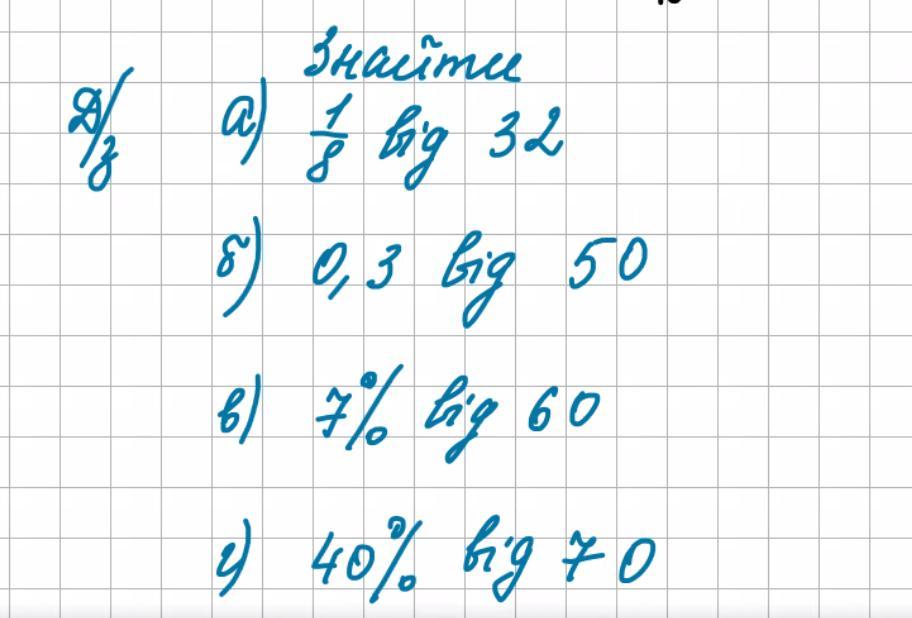 Знайти
Д/з а) 1/8 від 32
б) 0,3 від 50
в) 7% від 60
г) 40% від 70